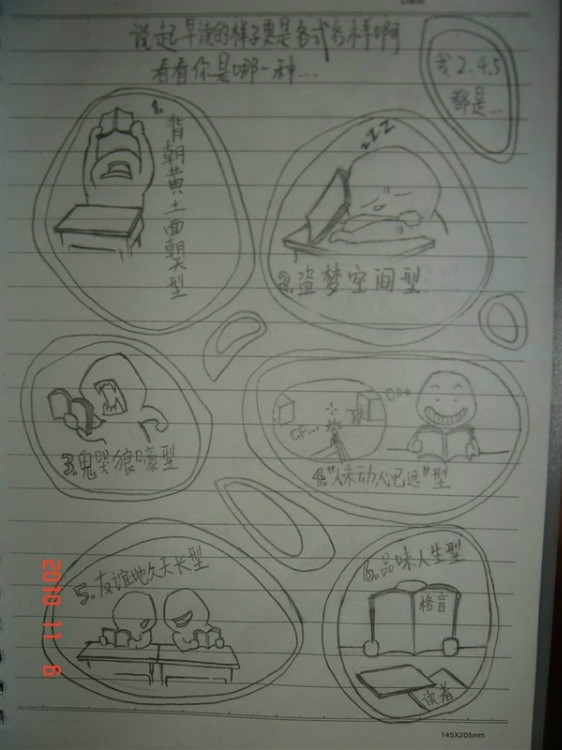 说起早读的样子更是各式各样啊
看看你是哪一种...
我2.4.5
都是...
1.背朝黄土面朝天型
zzZ
2.盗梦空间型
3.鬼哭狼嚎型
CF...
4."人未动心已远"型
5.友谊地久天长型
6.品味人生型
格言
读者
2010 11 6
145X205mm